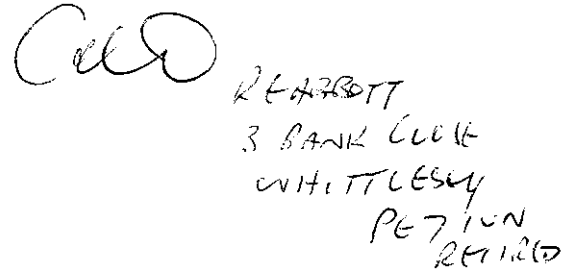 R E ABBOTT
3 BANK CLOSE
WHITTLESEY
PE7 1UN
RETIRED